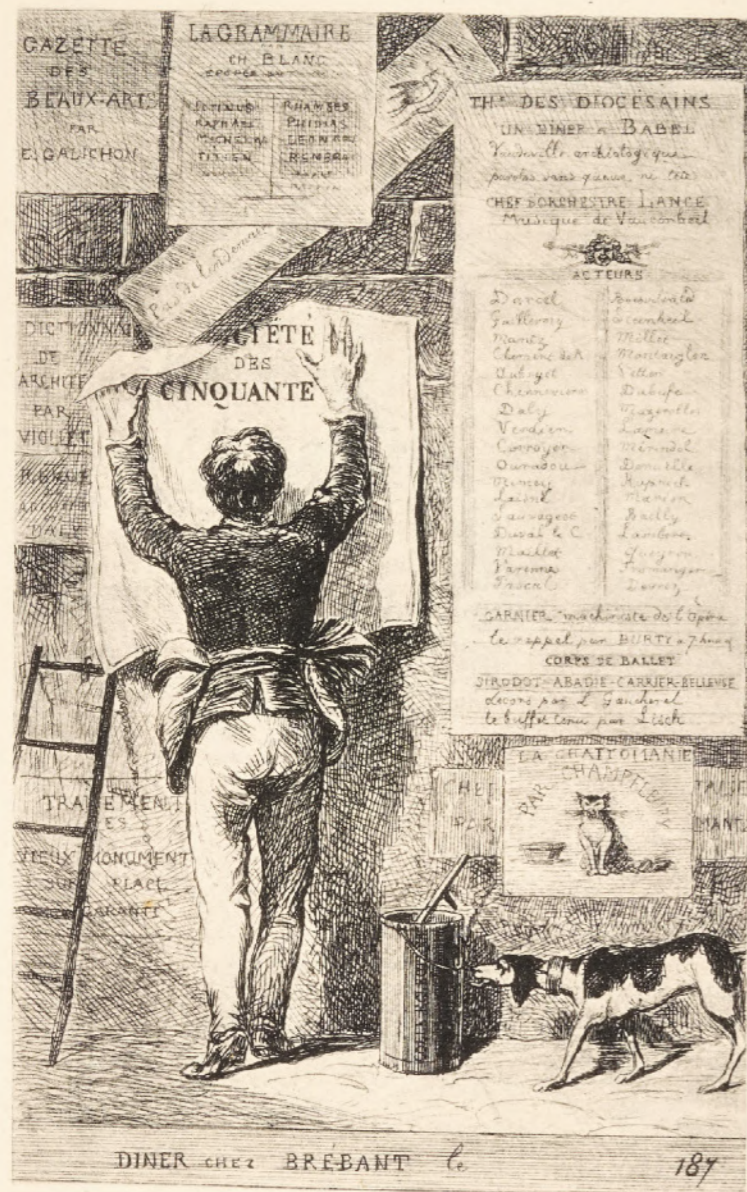 GAZETTE
DES
BEAUX-ARTS
PAR
E. GALICHON
LA GRAMMAIRE
CH BLANC
ICTINUS
RAPHAEL
MICHEL
TITIEN
RHAMSES
PHIDIAS
LEONAR
REMBRA
DICTIONNAI
DE
ARCHITE
PAR
VIOLLET
CIÉTÉ
DES
CINQUANTE
TH. DES DIOCESAINS
UN DINER A BABEL
Vaudeville archéologique
paroles sans queue ni tête
CHEF D'ORCHESTRE LANCE
Musique de Vaucorbeil
ACTEURS
Darcel
Gailleron
Mantz
Chennevieres
Daly
Verdier
Corroyer
Ouradou
Mimey
Laisné
Sauvageot
Duval le C.
Maillot
Varenne
Pascal
Boeswilwald
Millet
Montaiglon
Vitton
Dubufe
Lameire
Mérindol
Denuelle
Ruprich
Marion
Bailly
Queyron
Fromanger
GARNIER machiniste de l'Opéra
le rappel par BURTY a 7 heures
CORPS DE BALLET
GIRODOT-ABADIE-CARRIER-BELLEUSE
decors par L Gaucherel
le buffet tenu par Lisch
LA CHATTOMANIE
PAR CHAMPFLEURY
CHEF
PAR
MANT
TRAITEMENT
ES
VIEUX MONUMENT
SUR PLACE
GARANTI
DINER CHEZ BRÉBANT le 187